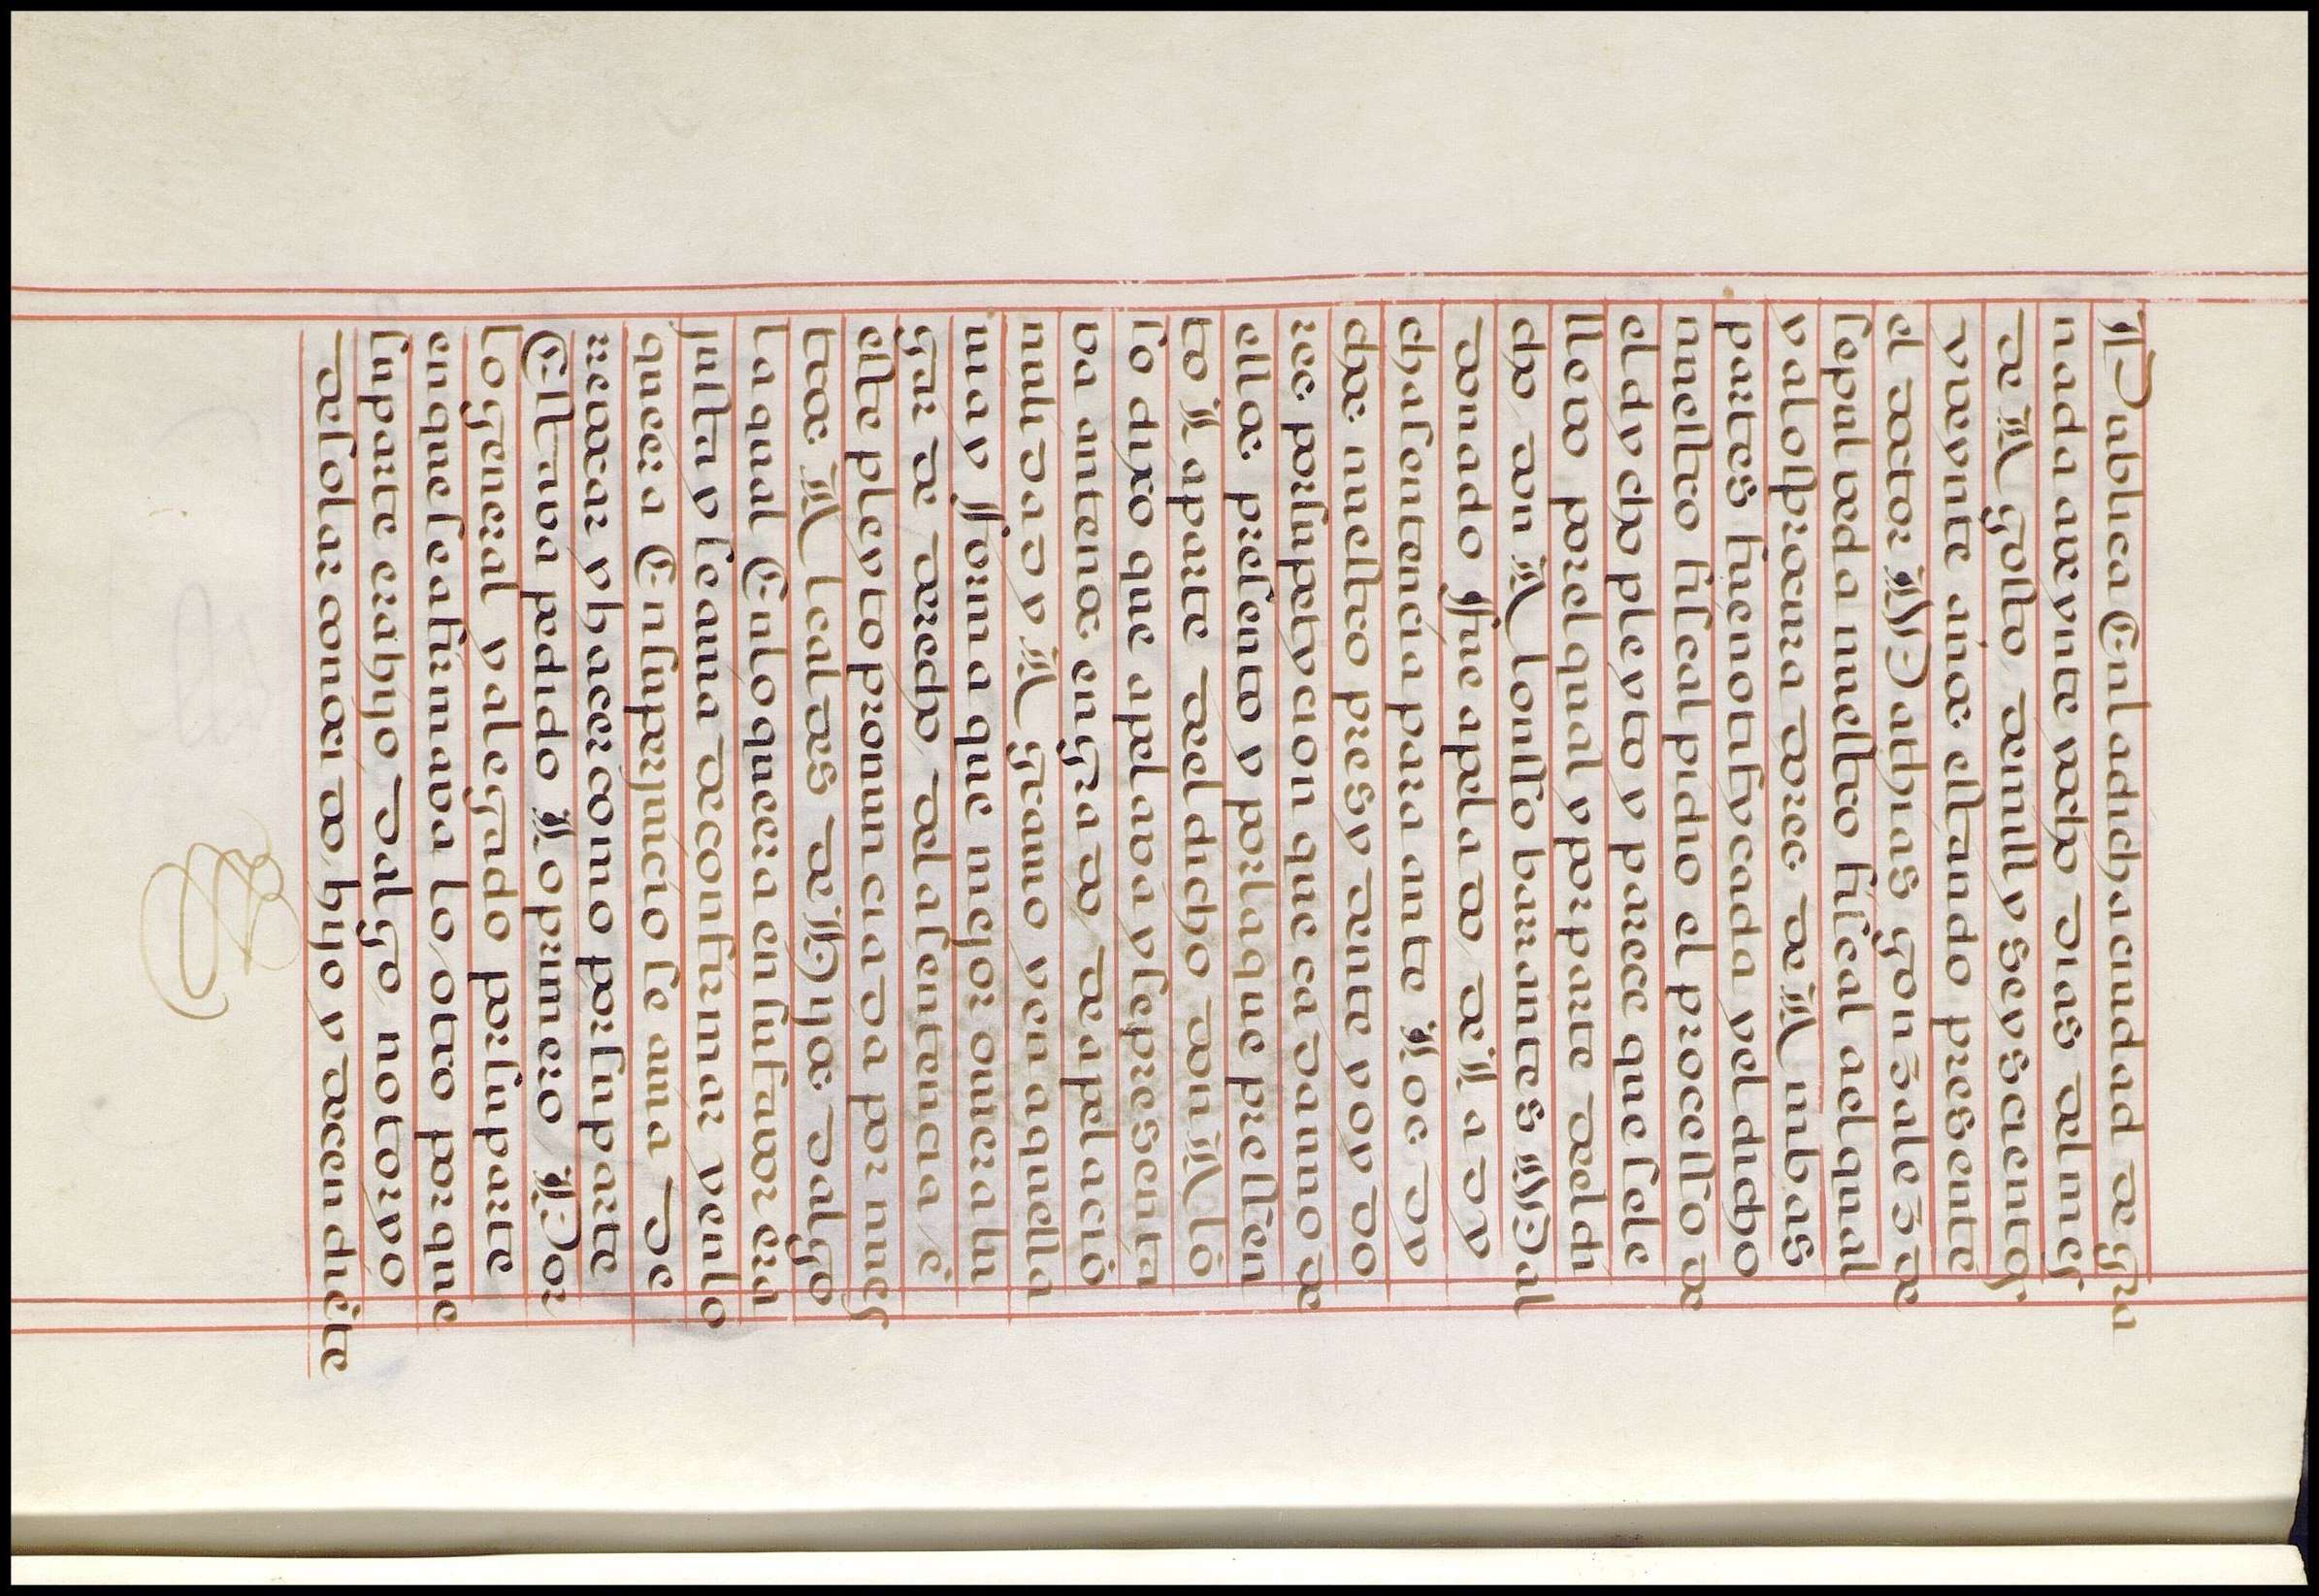 Publica Enla dicha ciudad de gra
nada a veynte y ocho dias del mes
de Agosto de mill y seyscientos
y veynte años estando presente
el doctor Mathias gonçalez de
sepulueda nuestro fiscal a el qual
y a los procuradores de Ambas
partes fue notificada y el dicho
nuestro fiscal pidio el processo de
el dycho pleyto y parece que se le
lleuo por el qual y por parte del di
cho don Alonsso barrantes Mal
donado ffue apelado de La dy
cha sentencia para ante Los dy
chos nuestro presydente y oydo
res por su petycion que cada uno de
ellos presento y por la que pressen
to La parte del dicho don Alõ
so dixo que apelaba y se presenta
ba antenos en grado de apelaciõ
nulidad y Agrauio v en aquella
uia y fforma que mejor ouiera lu
gar de derecho de la sentencia ẽ
este pleyto pronunciada por nues
tros Alcaldes de Hijos dalgo
la qual En lo que era en su fauor era
justa y se auia de confirmar y en lo
que era En su perjuicio se auia de
reuocar y hacer como por su parte
Estaua pedido Lo primero Por
lo general y alegado por su parte
en que se afirmaua lo otro porque
su parte era hijo dalgo notoryo
de solar conocido hijo y decendiẽte